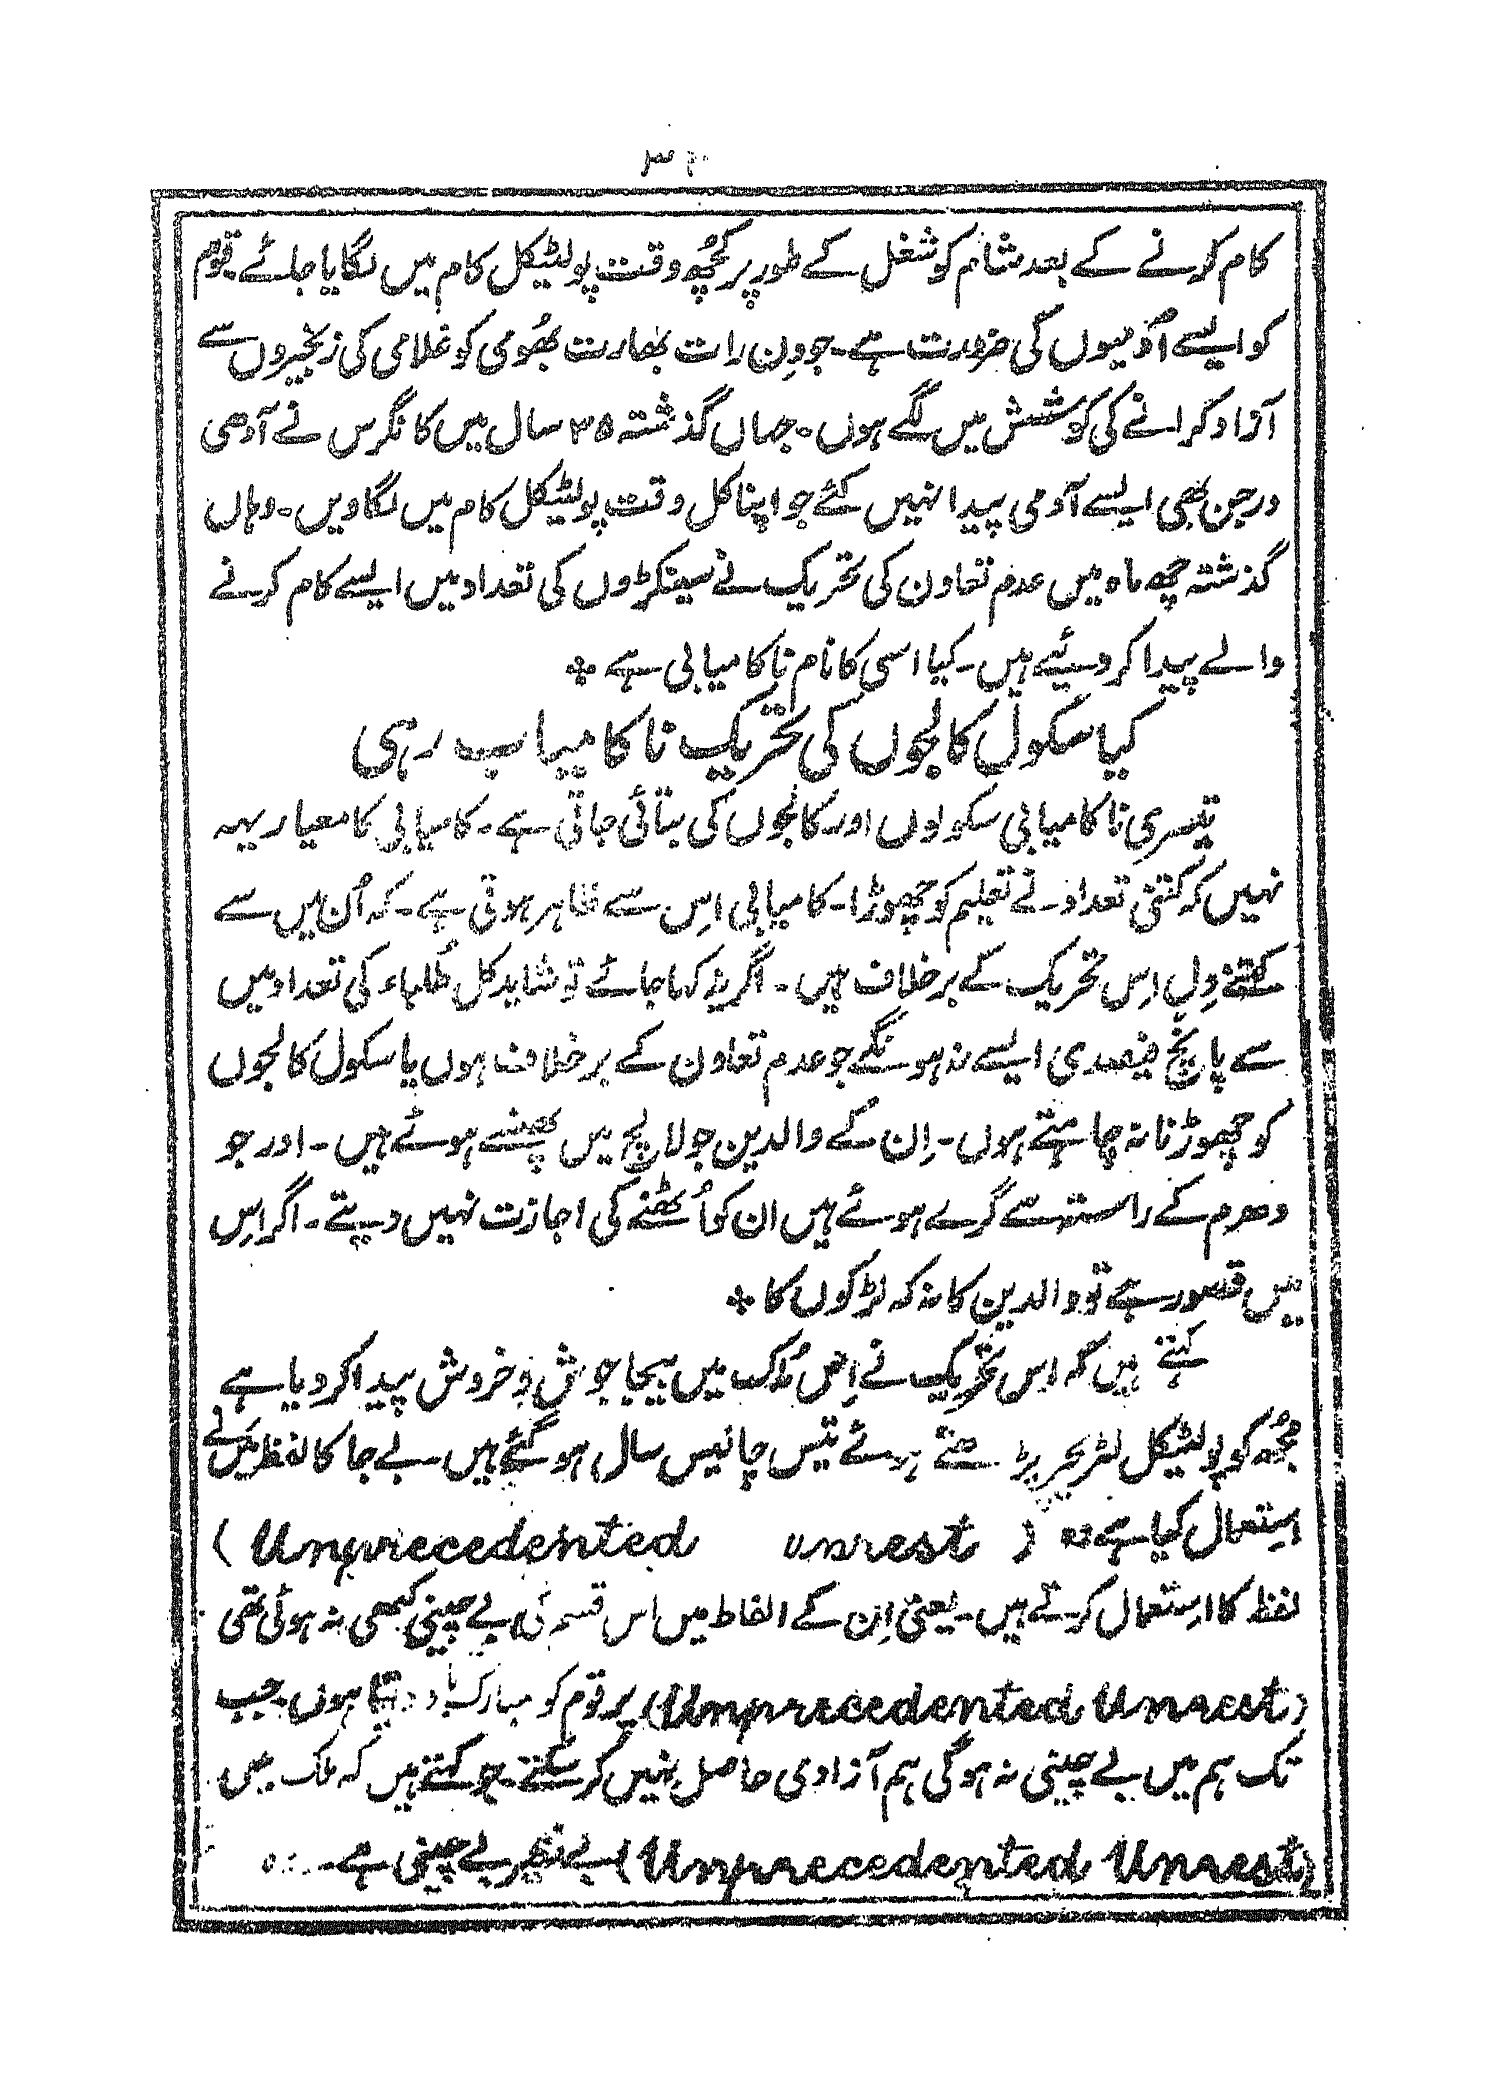 کام کرنے کے بعد شام کو شغل کے طور پر کچُھ وقت پولٹیکل کام میں لگایا جائے۔ قوم
کو ایسے آدمیوں کی ضرورت ہے۔ جو دِن رات بھارت بھُومی کو غلامی کی زنجیروں سے
آزاد کرانے کی کوشش میں لگے ہوں۔ جہاں گذشتہ ۳۵ سال میں کانگرس نے آدھی
درجن بھی ایسے آدمی پیدا نہیں کئے جو اپنا کل وقت پولٹیکل کام میں لگاویں۔ وہاں
گذشتہ چھ ماہ میں عدم تعاون کی تحریک نے سینکڑوں کی تعداد میں ایسے کام کرنے
والے پیدا کر دیئے ہیں۔ کیا اسی کا نام ناکامیابی ہے ٭
کیا سکول کالجوں کی تحریک ناکامیاب رہی
تیسری ناکامیابی سکولوں اور کالجوں کی بتائی جاتی ہے۔ کامیابی کا معیار یہہ
نہیں کہ کتنی تعداد نے تعلیم کو چھوڑا۔ کامیابی اِس سے ظاہر ہوتی ہے۔ کہ اُن میں سے
کتنے دِل اِس تحریک کے برخلاف ہیں۔ اگر یہ کہا جائے تو شاید کل طُلباء کی تعداد میں
سے پانچ فیصدی ایسے نہ ہونگے جو عدم تعاون کے برخلاف ہوں یا سکول کالجوں
کو چھوڑنا نہ چاہتے ہوں۔ اِن کے والدین جو لالچ میں پھنسے ہوئے ہیں۔ اور جو
دھرم کے راستہ سے گرے ہوئے ہیں ان کو اُٹھنے کی اجازت نہیں دیتے۔ اگر اِس
میں قصور ہے تو والدین کا نہ کہ لڑکوں کا ٭
کہتے ہیں کہ اِس تحریک نے اِس مُلک میں بیجا جوش و خروش پیدا کر دیا ہے
مجُھ کو پولٹیکل لٹریچر پڑھتے ہوئے تیس چالیس سال ہو گئے ہیں۔ بے جا کا لفظ میں نے
اِستعمال کیا ہے وہ (Unprecedented unrest)
لفظ کا اِستعمال کرتے ہیں۔ یعنی اِن کے الفاظ میں اس قسم کی بے چینی کبھی نہ ہوئی تھی
(Unprecedented Unrest) پر قوم کو مبارک باد دیتا ہوں۔ جب
تک ہم میں بے چینی نہ ہوگی ہم آزادی حاصل نہیں کر سکتے۔ جو کہتے ہیں کہ ملک میں
(Unprecedented Unrest) بے نظیر بے چینی ہے۔